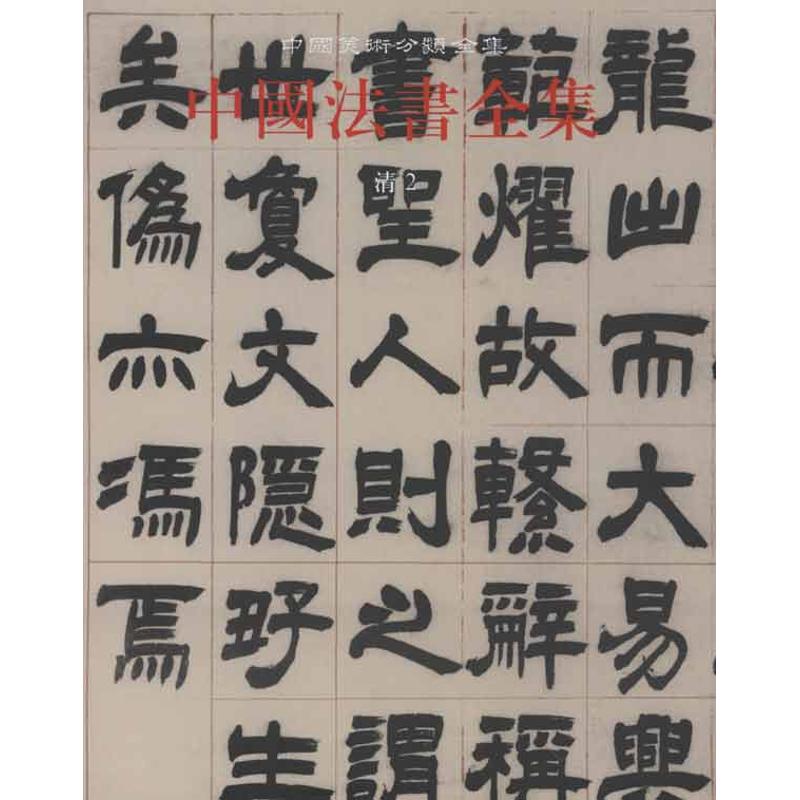 中國美術分類全集
中國法書全集
清 2
龍出而大易興
範耀故繫辭稱
書聖人則之謂
世敻文隱好生
矣偽亦馮焉